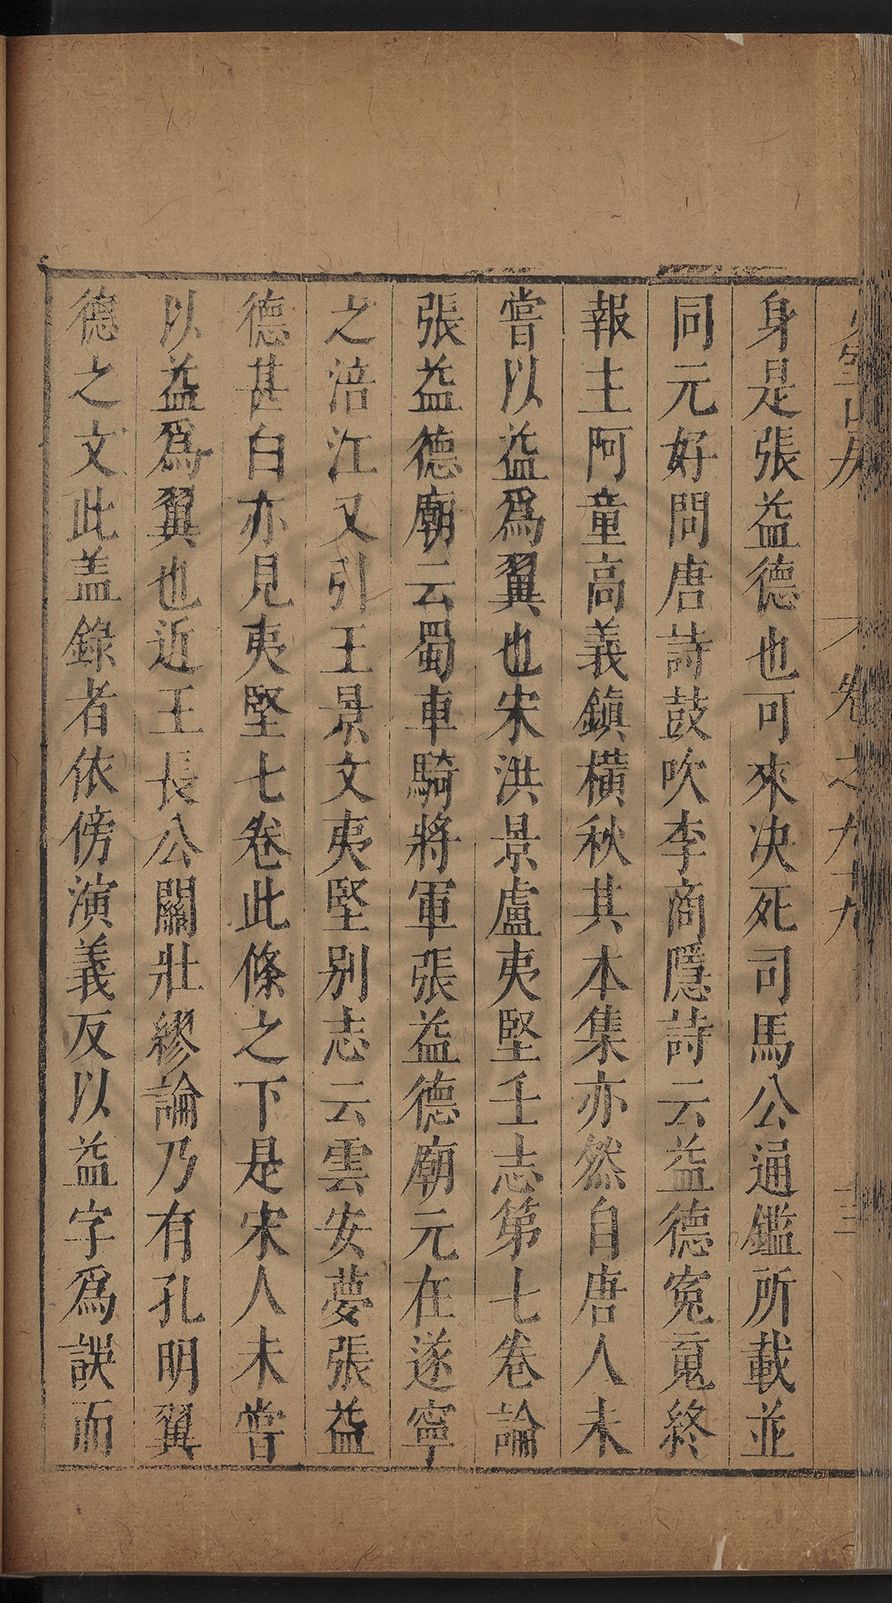 身是張益德也可來决死司馬公通鑑所載並
同元好問唐詩鼓吹李商隱詩云益德寃䰟終
報主阿童高義鎮橫秋其本集亦然自唐人未
嘗以益爲翼也宋洪景盧夷堅壬志第七卷論
張益德廟云蜀車騎將軍張益德廟元在遂寧
之涪江又引王景文夷堅别志云雲安夢張益
德甚白亦見夷堅七卷此條之下是宋人未嘗
以益爲翼也近王長公關壯繆論乃有孔明翼
德之文此盖錄者依傍演義反以益字爲誤而